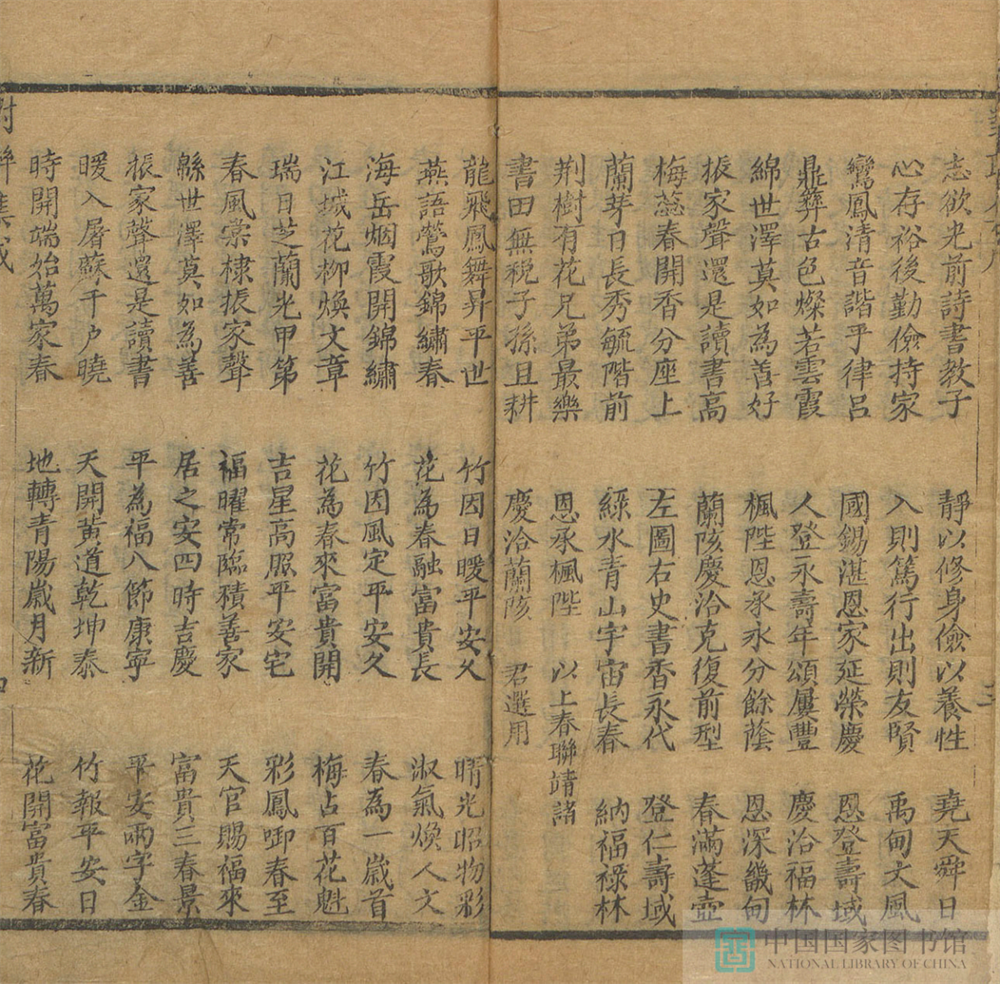 志欲光前詩書教子
心存裕後勤儉持家
鸞鳳清音諧乎律呂
鼎彝古色燦若雲霞
綿世澤莫如為善好
振家聲還是讀書高
梅蕊春開香分座上
蘭芽日長秀毓階前
荆樹有花兄弟最樂
書田無税子孫且耕
靜以修身儉以養性
入則篤行出則友賢
國錫湛恩家延榮慶
人登永壽年頌屢豐
楓陛恩承永分餘蔭
蘭陔慶洽克復前型
左圖右史書香永代
綠水青山宇宙長春
恩承楓陛
慶洽蘭陔
堯天舜日
禹甸文風
恩登壽域
慶洽福林
恩深畿甸
春滿蓬壺
登仁壽域
納福祿林
以上春聯請諸
君選用
三
龍飛鳳舞昇平世
燕語鶯歌錦繡春
海岳烟霞開錦繡
江城花柳煥文章
瑞日芝蘭光甲第
春風棠棣振家聲
緜世澤莫如為善
振家聲還是讀書
暖入屠蘇千户曉
時開端始萬家春
竹因日暖平安久
花為春融富貴長
竹因風定平安久
花為春來富貴開
吉星高照平安宅
福曜常臨積善家
居之安四時吉慶
平為福八節康寧
天開黄道乾坤泰
地轉青陽歲月新
晴光昭物彩
淑氣煥人文
春為一歲首
梅占百花魁
彩鳳啣春至
天官賜福來
富貴三春景
平安兩字金
竹報平安日
花開富貴春
中国国家图书馆
NATIONAL LIBRARY OF CHINA